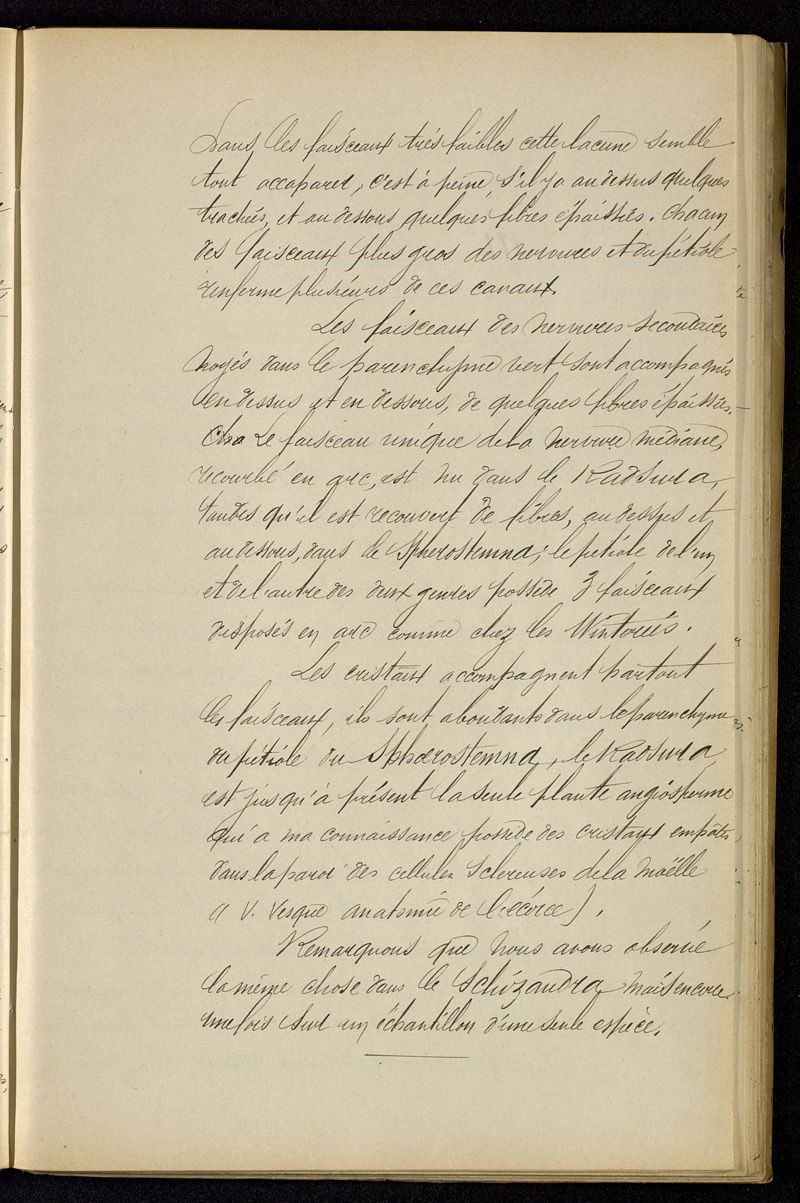 Dans les faisceaux très faibles cette lacune semble
tout accaparer, c'est à peine s'il y a au dessus quelques
trachées, et au dessous quelques fibres épaissies. Chacun
des faisceaux plus gros des nervures et du pétiole
renferme plusieurs de ces canaux.
Les faisceaux des nervures secondaires
noyés dans le parenchyme vert sont accompagnés
en dessus et en dessous, de quelques fibres épaissies.
Cha Le faisceau unique de la nervure médiane,
recourbé en arc, est nu dans le Kadsura,
tandis qu'il est recouvert de fibres, au dessus et
au dessous, dans le Spherostemna; le pétiole de l'un
et de l'autre des deux genres possède 3 faisceaux
disposés en arc comme chez les Wintérées.
Les cristaux accompagnent partout
les faisceaux, ils sont abondants dans le parenchyme
du pétiole du Sphœrostemna, le Kadsura
est jusqu'à présent la seule plante angiosperme
qui à ma connaissance possède des cristaux empâtés
dans la paroi des cellules scléreuses de la moëlle
(V. Vesque anatomie de l'écorce).
Remarquons que nous avons observé
la même chose dans le Schizandra, mais encore
une fois sur un échantillon d'une seule espèce.